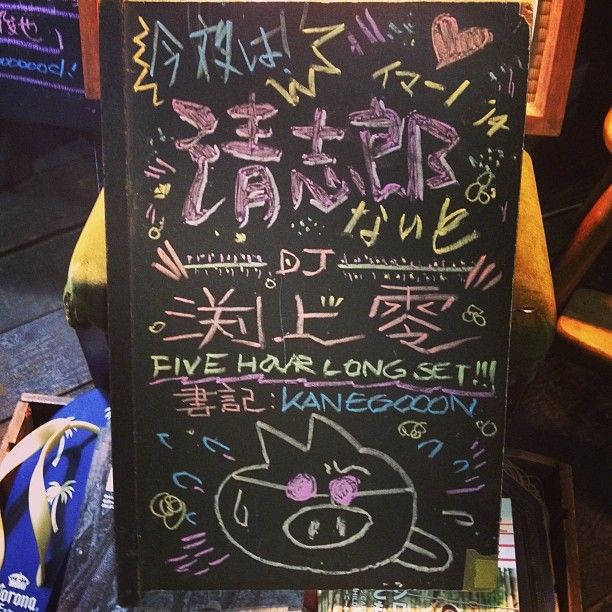 今夜は!
イマーノノタ
清志郎
ないと
DJ
渕上零
FIVE HOUR LONG SET!!!
書記:KANEGOOON
Corona